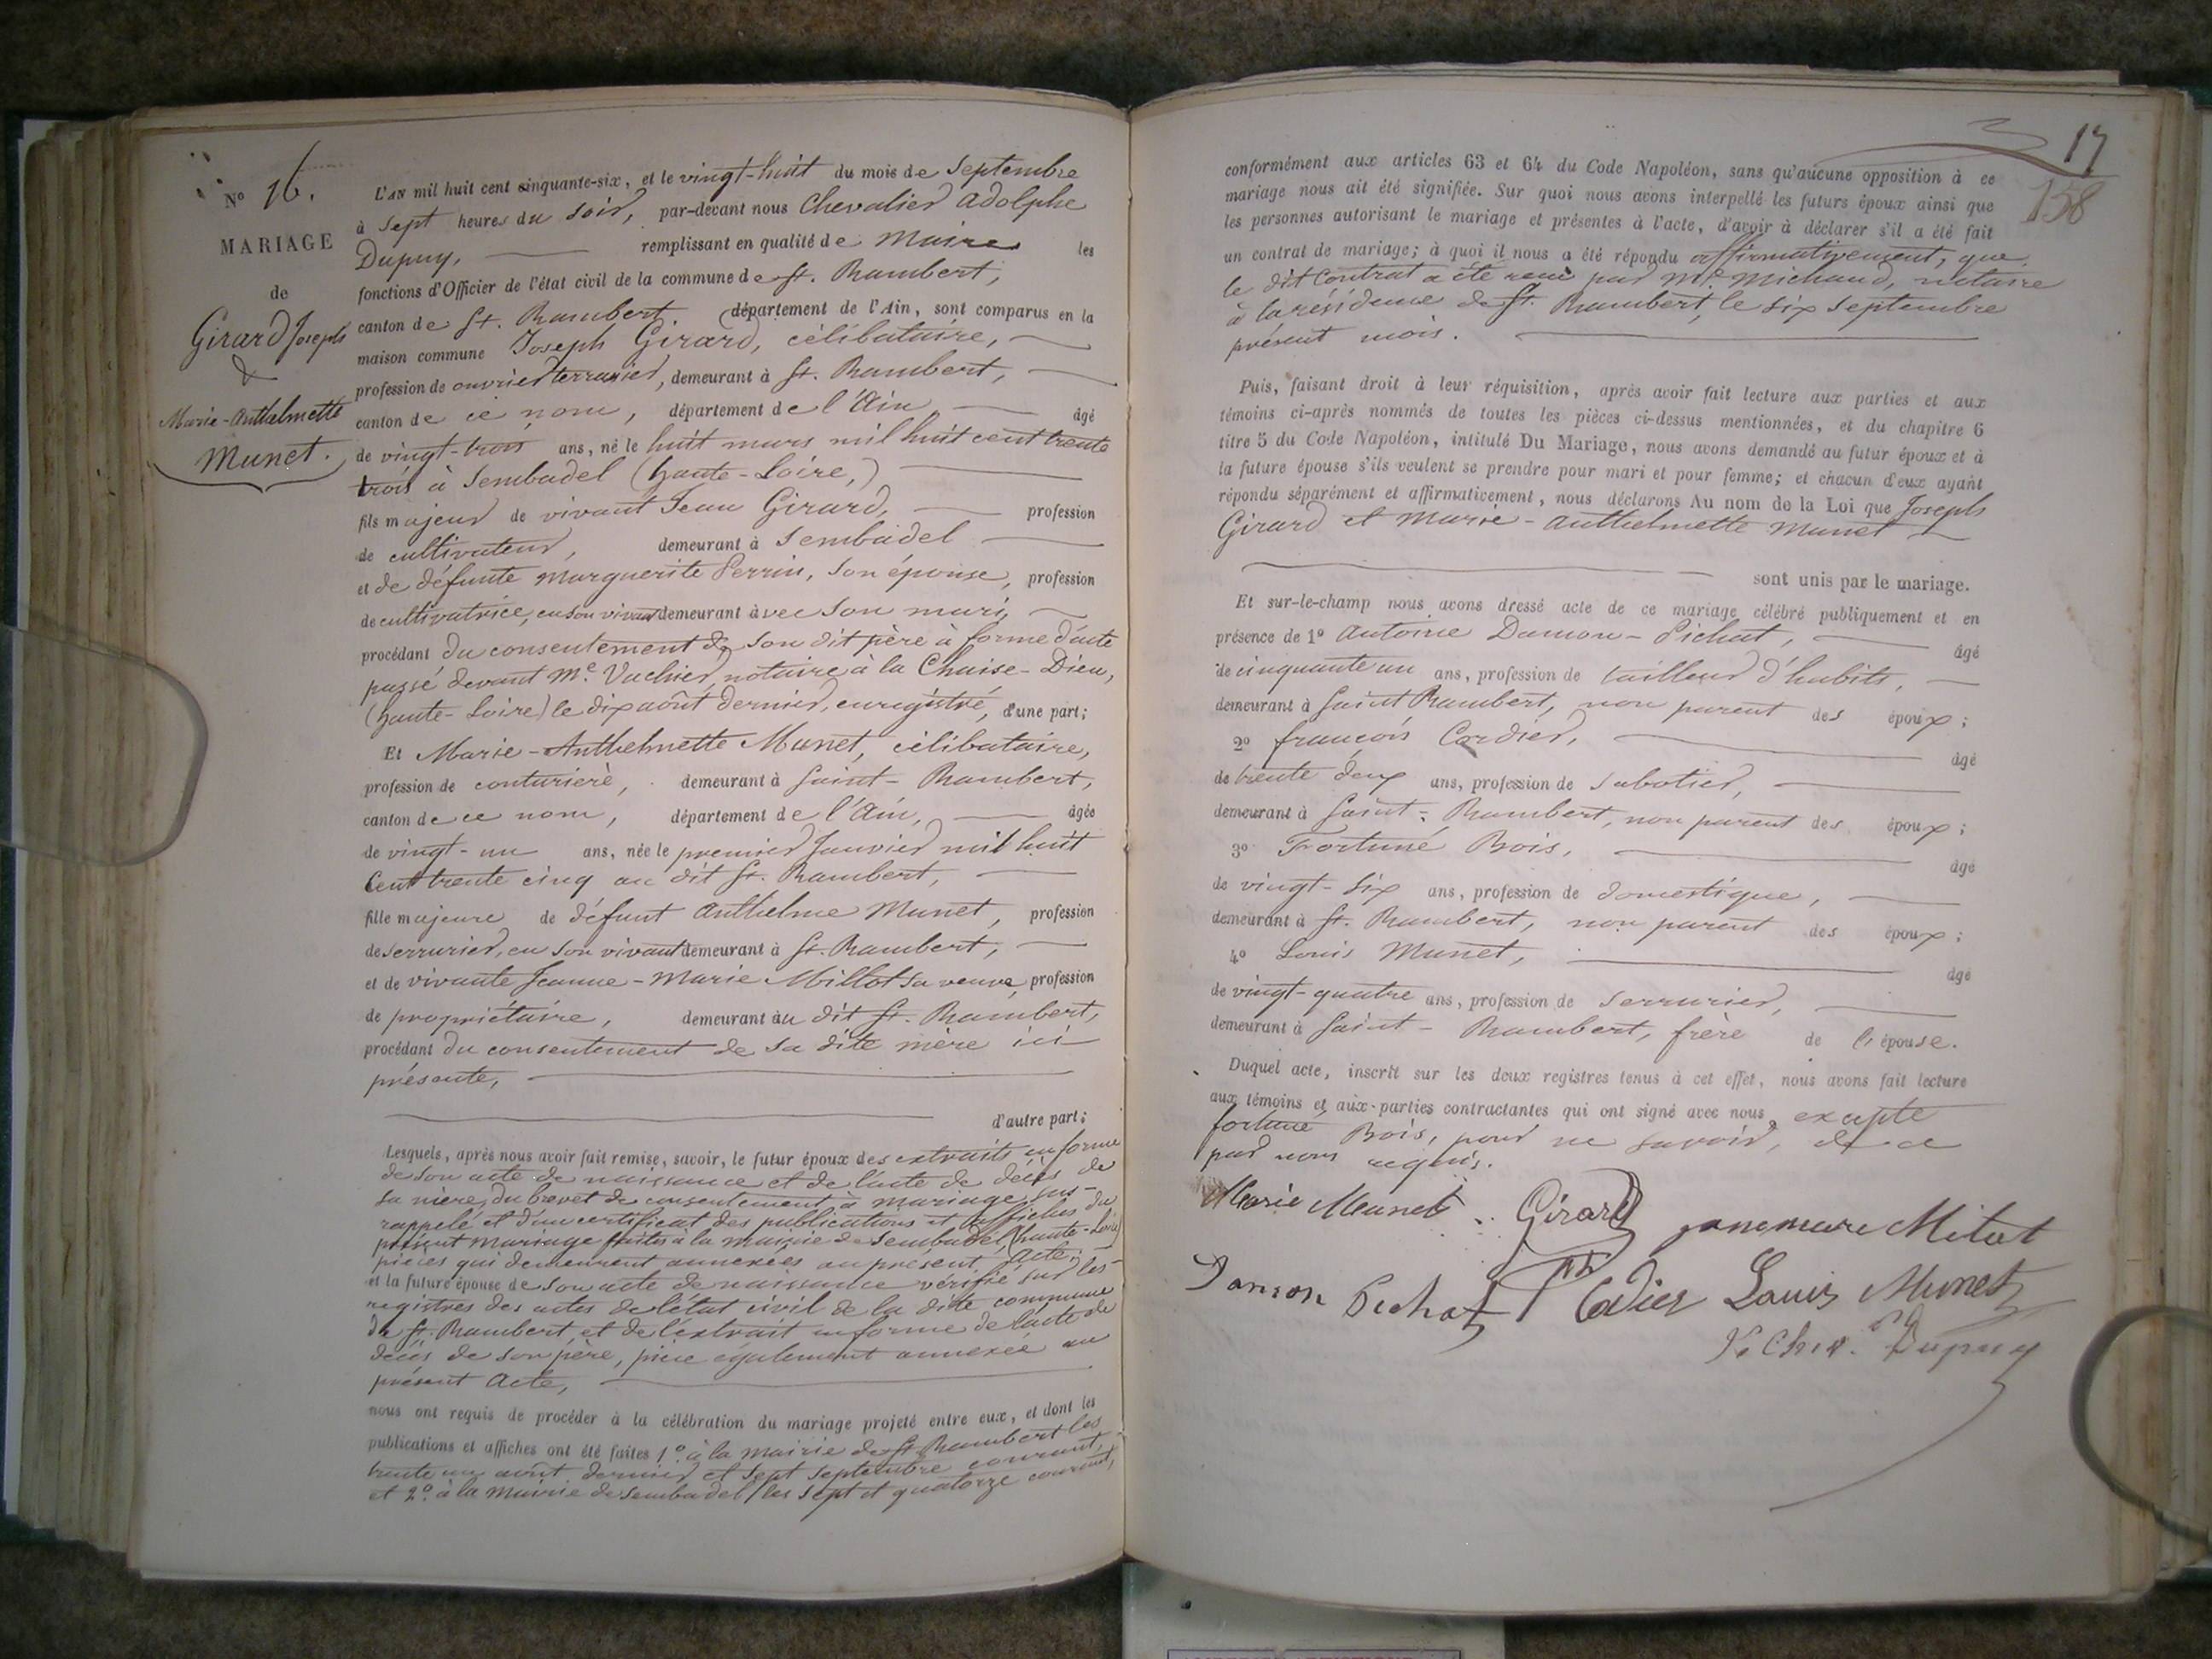 No 16.
MARIAGE
de
Girard Joseph
&
Marie-Anthelmette
Munet.
L'AN mil huit cent cinquante-six, et le vingt-huit du mois de Septembre
à Sept heures du Soir, par-devant nous Chevalier Adolphe
Dupuy, remplissant en qualité de Maire les
fonctions d'Officier de l'état civil de la commune de St. Rambert,
canton de St. Rambert département de l'Ain, sont comparus en la
maison commune Joseph Girard, célibataire,
profession de ouvrier terrassier, demeurant à St. Rambert,
canton de ce nom, département de l'Ain âgé
de vingt-trois ans, né le huit mars mil huit cent trente
trois à Sembadel (haute-Loire,)
fils majeur de vivant Jean Girard, profession
de cultivateur, demeurant à Sembadel
et de défunte Marguerite Perrin, son épouse, profession
de cultivatrice, en son vivant demeurant avec son mari,
procédant du consentement de son dit père à forme d'acte
passé devant Me. Vachier, notaire à la Chaise-Dieu,
(haute-Loire) le dix août dernier, enregistré, d'une part;
Et Marie-Anthelmette Munet, célibataire,
profession de couturière, demeurant à Saint-Rambert,
canton de ce nom, département de l'Ain, âgée
de vingt-un ans, née le premier Janvier mil huit
Cent trente cinq au dit St. Rambert,
fille majeure de défunt Anthelme Munet, profession
de serrurier, en son vivant demeurant à St. Rambert,
et de vivante Jeanne-Marie Millot sa veuve, profession
de propriétaire, demeurant au dit St. Rambert,
procédant du consentement de sa dite mère ici
présente,
d'autre part;
Lesquels, après nous avoir fait remise, savoir, le futur époux des extraits en forme
de son acte de naissance et de l'acte de décès de
sa mère, du brevet de consentement à mariage sus-
rappelé et d'un certificat des publications et affiches du
présent mariage faites à la mairie de Sembadel, (haute-Loire)
pièces qui demeurent annexées au présent Acte;
et la future épouse de son acte de naissance vérifié sur les
registres des actes de l'état civil de la dite commune
de St. Rambert, et de l'extrait en forme de l'acte de
décès de son père, pièce également annexée au
présent Acte,
nous ont requis de procéder à la célébration du mariage projeté entre eux, et dont les
publications et affiches ont été faites 1o. à la mairie de St. Rambert les
trente un août dernier et sept septembre courant,
et 2o. à la Mairie de Sembadel les sept et quatorze courant,
17
158
conformément aux articles 63 et 64 du Code Napoléon, sans qu'aucune opposition à ce
mariage nous ait été signifiée. Sur quoi nous avons interpellé les futurs époux ainsi que
les personnes autorisant le mariage et présentes à l'acte, d'avoir à déclarer s'il a été fait
un contrat de mariage; à quoi il nous a été répondu affirmativement, que
le dit Contrat a été reçu par Me. Michaud, notaire
à la résidence de St. Rambert, le six Septembre
présent mois.
Puis, faisant droit à leur réquisition, après avoir fait lecture aux parties et aux
témoins ci-après nommés de toutes les pièces ci-dessus mentionnées, et du chapitre 6
titre 5 du Code Napoléon, intitulé Du Mariage, nous avons demandé au futur époux et à
la future épouse s'ils veulent se prendre pour mari et pour femme; et chacun d'eux ayant
répondu séparément et affirmativement, nous déclarons Au nom de la Loi que Joseph
Girard et Marie-Anthelmette Munet
sont unis par le mariage.
Et sur-le-champ nous avons dressé acte de ce mariage célébré publiquement et en
présence de 1o Antoine Damon-Pichat, âgé
de cinquante un ans, profession de tailleur d'habits,
demeurant à Saint Rambert, non parent des époux;
2o françois Cordier, âgé
de trente deux ans, profession de sabotier,
demeurant à Saint-Rambert, non parent des époux;
3o Fortuné Bois, âgé
de vingt-six ans, profession de domestique,
demeurant à St. Rambert, non parent des époux;
4o Louis Munet, âgé
de vingt-quatre ans, profession de serrurier,
demeurant à Saint-Rambert, frère de l'épouse.
Duquel acte, inscrit sur les deux registres tenus à cet effet, nous avons fait lecture
aux témoins et aux parties contractantes qui ont signé avec nous, excepté
fortuné Bois, pour ne savoir, de ce
par nous requis.
Marie Munet Girard janemarie Milot
Damon Pichat Cordier Louis Munet
Le Cher. Dupuy